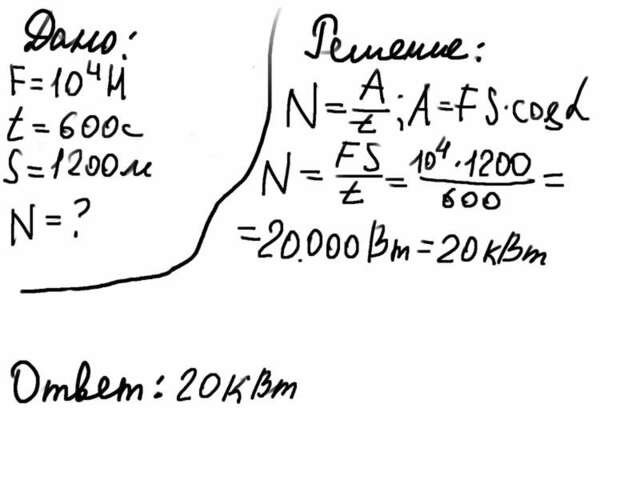 Дано:
F=10⁴Н
t=600с
S=1200м
N=?
Решение:
N=A/t; A=FS·cosα
N=FS/t=10⁴·1200/600=
=20.000Вт=20кВт
Ответ: 20кВт